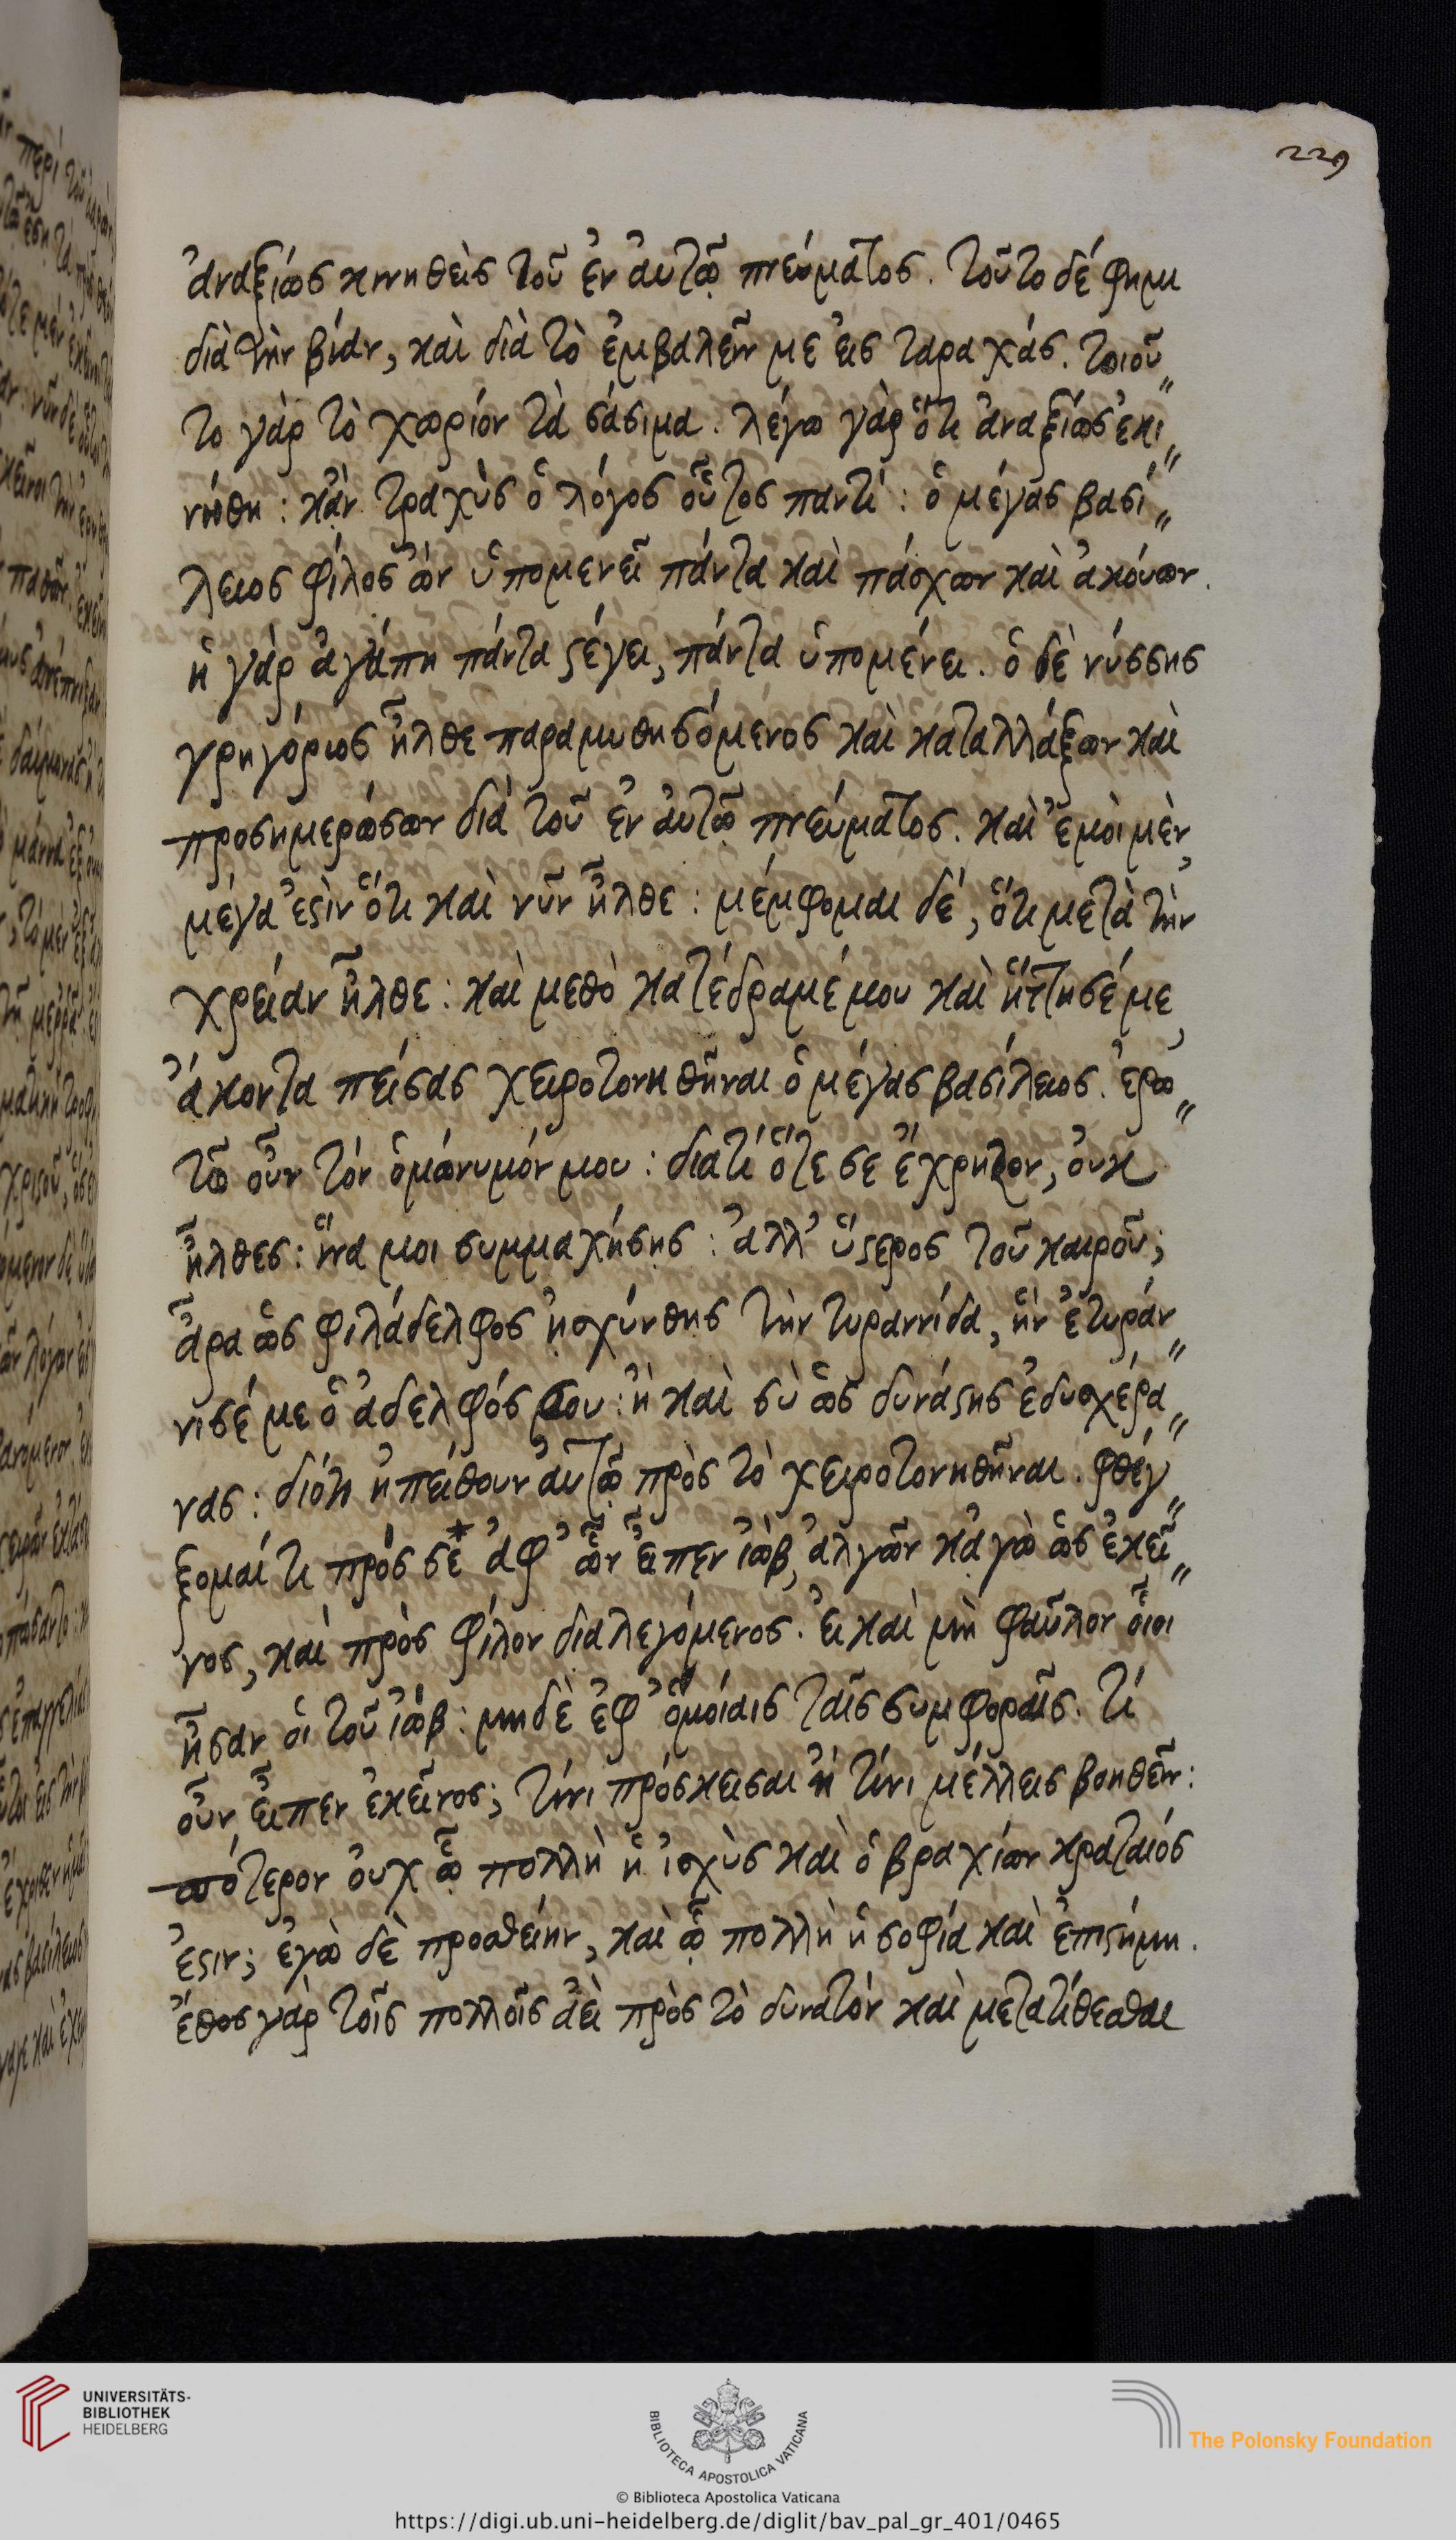 229
ἀναξίως κινηθεὶς τοῦ ἐν ἀυτῶ πνεύματος. τοῦτο δέ φημι
διὰ τὴν βίαν, καὶ διὰ τὸ ἐμβαλεῖν με εἰς ταραχάς. τοιοῦ„
το γὰρ τὸ χωρίον τὰ σάσιμα. λέγω γὰρ ὅτι ἀναξίως ἐκι„
νήθη: κἂν τραχὺς ὁ λόγος οὗτος παντί: ὁ μέγας βασί„
λειος φίλος ὢν ὑπομενεῖ πάντα καὶ πάσχων καὶ ἀκούων.
ἡ γὰρ ἀγάπη πάντα ϛέγει, πάντα ὑπομένει. ὁ δὲ νύσσης
γρηγόριος ἦλθε παραμυθησόμενος καὶ καταλλάξων καὶ
προσημερώσων διὰ τοῦ ἐν ἀυτῶ πνεύματος. καὶ ἐμοὶ μὲν
μέγα ἐϛὶν ὅτι καὶ νῦν ἦλθε: μέμφομαι δέ, ὅτι μετὰ τὴν
χρείαν ἦλθε: καὶ μεθὸ κατέδραμέ μου καὶ ἥττησέ με
ἄκοντα πείσας χειροτονηθῆναι ὁ μέγας βασίλειος. ἐρω„
τῶ οὖν τὸν ὁμώνυμόν μου: διατί ὅτε σε ἔχρηζον, ὀυκ
ἦλθες: ἵνα μοι συμμαχήσης: ἀλλ' ὕϛερος τοῦ καιροῦ;
ἆρα ὡς φιλάδελφος ᾐσχύνθης τὴν τυραννίδα, ἣν ἐτυράν„
νισέ με ὁ ἀδελφός σου: ἢ καὶ σὺ ὡς δυνάϛης ἐδυσχέρα„
νας: διότι ἠπείθουν ἀυτῶ πρὸς τὸ χειροτονηθῆναι. φθέγ„
ξομαί τι πρός σὲ* ἀφ' ὧν εἶπεν ἰὼβ, ἀλγῶν κἀγὼ ὡς ἐκεῖ„
νος, καὶ πρὸς φίλον διαλεγόμενος. ἐι καὶ μὴ φαῦλον οἷοι
ἦσαν ὁι τοῦ ἰώβ: μηδὲ ἐφ' ὁμοίαις ταῖς συμφοραῖς. τί
οὖν εἶπεν ἐκεῖνος; τίνι πρόσκεισαι ἢ τίνι μέλλεις βοηθεῖν:
πότερον ὀυχ ᾧ πολλὴ ἡ ἰσχὺς καὶ ὁ βραχίων κραταιός
ἐϛιν; ἐγὼ δὲ προσθείην, καὶ ᾧ πολλὴ ἡ σοφία καὶ ἐπιϛήμη.
ἔθος γὰρ τοῖς πολλοῖς ἀεὶ πρὸς τὸ δυνατὸν καὶ μετατίθεσθαι
UNIVERSITÄTS-
BIBLIOTHEK
HEIDELBERG
BIBLIOTECA APOSTOLICA VATICANA
© Biblioteca Apostolica Vaticana
The Polonsky Foundation
https://digi.ub.uni-heidelberg.de/diglit/bav_pal_gr_401/0465